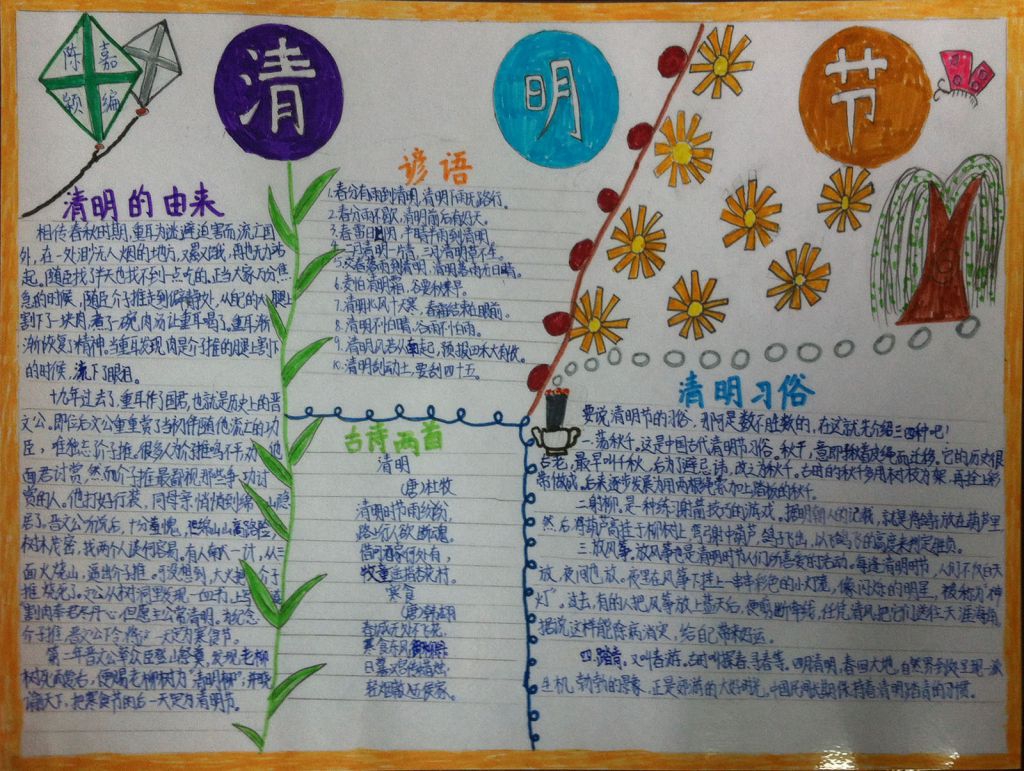 陈 嘉
颖 编
清 明 节
清明的由来
相传春秋时期,重耳为逃避迫害而流亡国
外,在一处渺无人烟的地方,又累又饿,再也无力站
起。随臣找了半天也找不到一点吃的,正当大家万分焦
急的时候,随臣介子推走到僻静处,从自己的大腿上
割下了一块肉,煮了一碗肉汤让重耳喝了,重耳渐
渐恢复了精神。当重耳发现肉是介子推的腿上割下
的时候,流下了眼泪。
十九年过去了,重耳作了国君,也就是历史上的晋
文公。即位后文公重重赏了当初伴随他流亡的功
臣,唯独忘了介子推。很多人为介子推鸣不平,劝他
面君讨赏,然而介子推最鄙视那些争功讨
赏的人。他打好行装,同母亲悄悄到绵山隐
居了。晋文公听说后,十分羞愧,
树木茂密,找两个人谈何容易,有人献一计,从三
面火烧山,逼出介子推。可没想到,大火
割肉奉君尽丹心,但愿主公常清明。为纪念
介子推,晋文公下令将这一天定为寒食节。
第二年晋文公率众臣登山祭奠,发现老柳
树死而复活,便赐老柳树为“清明柳”,并晓
谕天下,把寒食节的后一天定为清明节。
谚语
1.春分有雨到清明,清明下雨无路行。
2.春分雨不歇,清明前后有好天。
6.麦怕清明霜,谷要秋来旱。
7.清明北风十天寒,春霜结束在眼前。
8.清明不怕晴,谷雨不怕雨。
9.清明风若从南起,预报田禾大有收。
10.清明刮动土,要刮四十五。
古诗两首
清明
(唐)杜牧
清明时节雨纷纷,
路上行人欲断魂。
借问酒家何处有,
牧童遥指杏花村。
寒食
(唐)韩翃
春城无处不飞花,
寒食东风御柳斜。
日暮汉宫传蜡烛,
轻烟散入五侯家。
清明习俗
要说清明节的习俗,那可是数不胜数的,在这就先介绍三四种吧!
一.荡秋千。这是中国古代清明节习俗。秋千,意即揪着皮绳而迁移。它的历史很
古老,最早叫千秋,后为了避忌讳,改之为秋千。古时的秋千多用树枝为架,再拴上彩
带做成。后来逐步发展为用两根绳索加上踏板的秋千。
二.射柳。是一种练习射箭技巧的游戏。据明朝人的记载,就是将鸽子放在葫芦里,
然后将葫芦高挂于柳树上,弯弓射中葫芦,鸽子飞出,以飞鸽飞的高度来判定胜负。
三.放风筝。放风筝也是清明时节人们所喜爱的活动。每逢清明时节,人们不仅白天
放,夜间也放。夜里在风筝下挂上一串串彩色的小灯笼,像闪烁的明星,被称为“神
灯”。过去,有的人把风筝放上蓝天后,便剪断牵线,任凭清风把它们送往天涯海角,
据说这样能除病消灾,给自己带来好运。
四.踏青。又叫春游,古时叫探春、寻春等。四月清明,春回大地,自然界到处呈现一派
生机勃勃的景象,正是郊游的大好时光。中国民间长期保持着清明踏青的习惯。